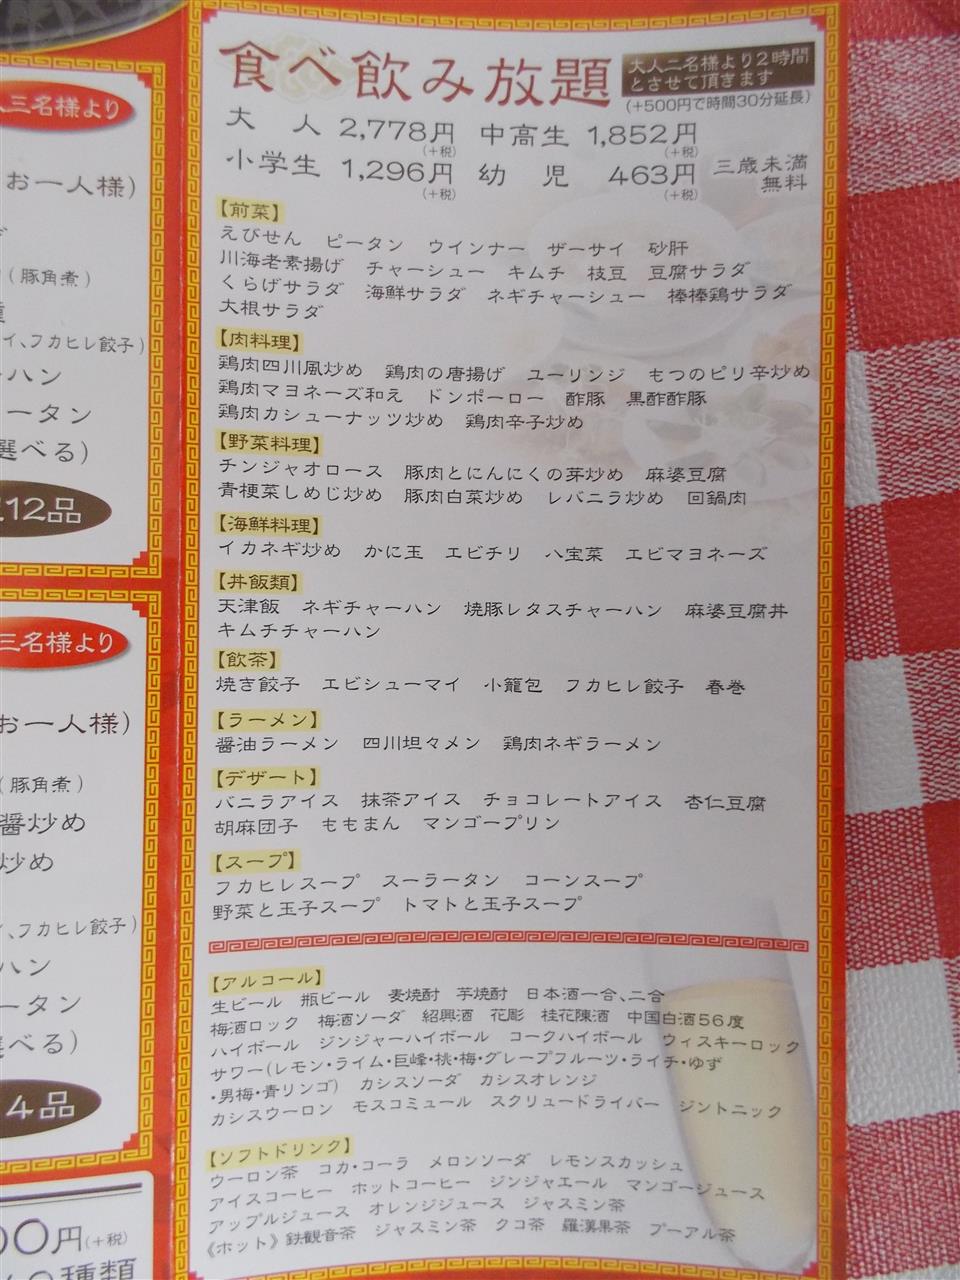 食べ飲み放題
大人二名様より2時間
とさせて頂きます
(+500円で時間30分延長)
大　人 2,778円(+税) 中高生 1,852円(+税)
小学生 1,296円(+税) 幼　児 463円(+税) 三歳未満無料
【前菜】
えびせん　ピータン　ウインナー　ザーサイ　砂肝
川海老素揚げ　チャーシュー　キムチ　枝豆　豆腐サラダ
くらげサラダ　海鮮サラダ　ネギチャーシュー　棒棒鶏サラダ
大根サラダ
【肉料理】
鶏肉四川風炒め　鶏肉の唐揚げ　ユーリンジ　もつのピリ辛炒め
鶏肉マヨネーズ和え　ドンポーロー　酢豚　黒酢酢豚
鶏肉カシューナッツ炒め　鶏肉辛子炒め
【野菜料理】
チンジャオロース　豚肉とにんにくの芽炒め　麻婆豆腐
青梗菜しめじ炒め　豚肉白菜炒め　レバニラ炒め　回鍋肉
【海鮮料理】
イカネギ炒め　かに玉　エビチリ　八宝菜　エビマヨネーズ
【丼飯類】
天津飯　ネギチャーハン　焼豚レタスチャーハン　麻婆豆腐丼
キムチチャーハン
【飲茶】
焼き餃子　エビシューマイ　小籠包　フカヒレ餃子　春巻
【ラーメン】
醤油ラーメン　四川坦々メン　鶏肉ネギラーメン
【デザート】
バニラアイス　抹茶アイス　チョコレートアイス　杏仁豆腐
胡麻団子　ももまん　マンゴープリン
【スープ】
フカヒレスープ　スーラータン　コーンスープ
野菜と玉子スープ　トマトと玉子スープ
【アルコール】
生ビール　瓶ビール　麦焼酎　芋焼酎　日本酒一合、二合
梅酒ロック　梅酒ソーダ　紹興酒　花彫　桂花陳酒　中国白酒56度
ハイボール　ジンジャーハイボール　コークハイボール　ウィスキーロック
サワー(レモン・ライム・巨峰・桃・梅・グレープフルーツ・ライチ・ゆず
・男梅・青リンゴ)　カシスソーダ　カシスオレンジ
カシスウーロン　モスコミュール　スクリュードライバー　ジントニック
【ソフトドリンク】
ウーロン茶　コカ・コーラ　メロンソーダ　レモンスカッシュ
アイスコーヒー　ホットコーヒー　ジンジャエール　マンゴージュース
アップルジュース　オレンジジュース　ジャスミン茶
《ホット》鉄観音茶　ジャスミン茶　クコ茶　羅漢果茶　プーアル茶
三名様より
お一人様)
(豚角煮)
イ、フカヒレ餃子)
ーハン
ータン
選べる)
12品
三名様より
お一人様)
(豚角煮)
醤炒め
炒め
、フカヒレ餃子)
ハン
ータン
べる)
4品
00円(+税)
種類